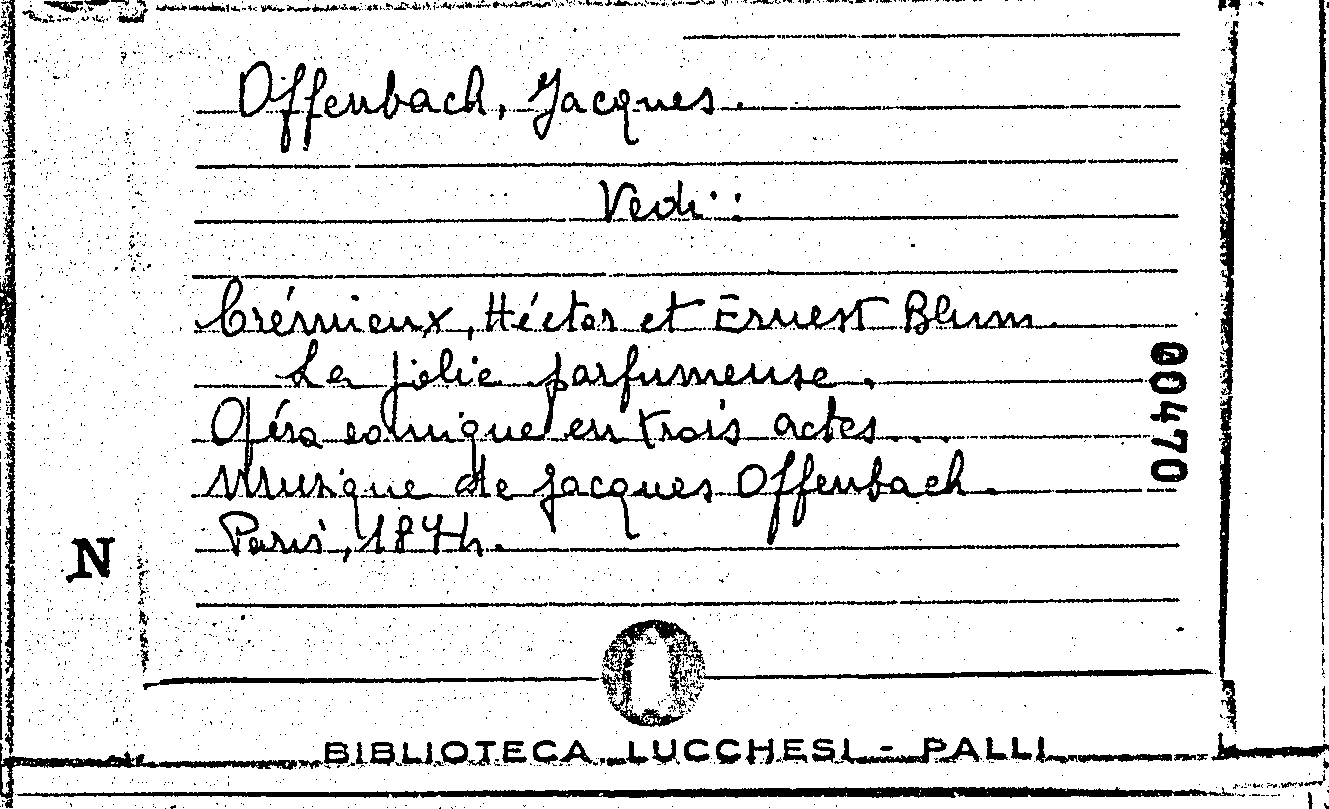 Offenbach, Jacques.
Vedi:
Crémieux, Héctor et Ernest Blum.
La jolie parfumeuse.
Opéra comique en trois actes...
Musique de Jacques Offenbach.
Paris, 1874.
00470
N
BIBLIOTECA LUCCHESI - PALLI